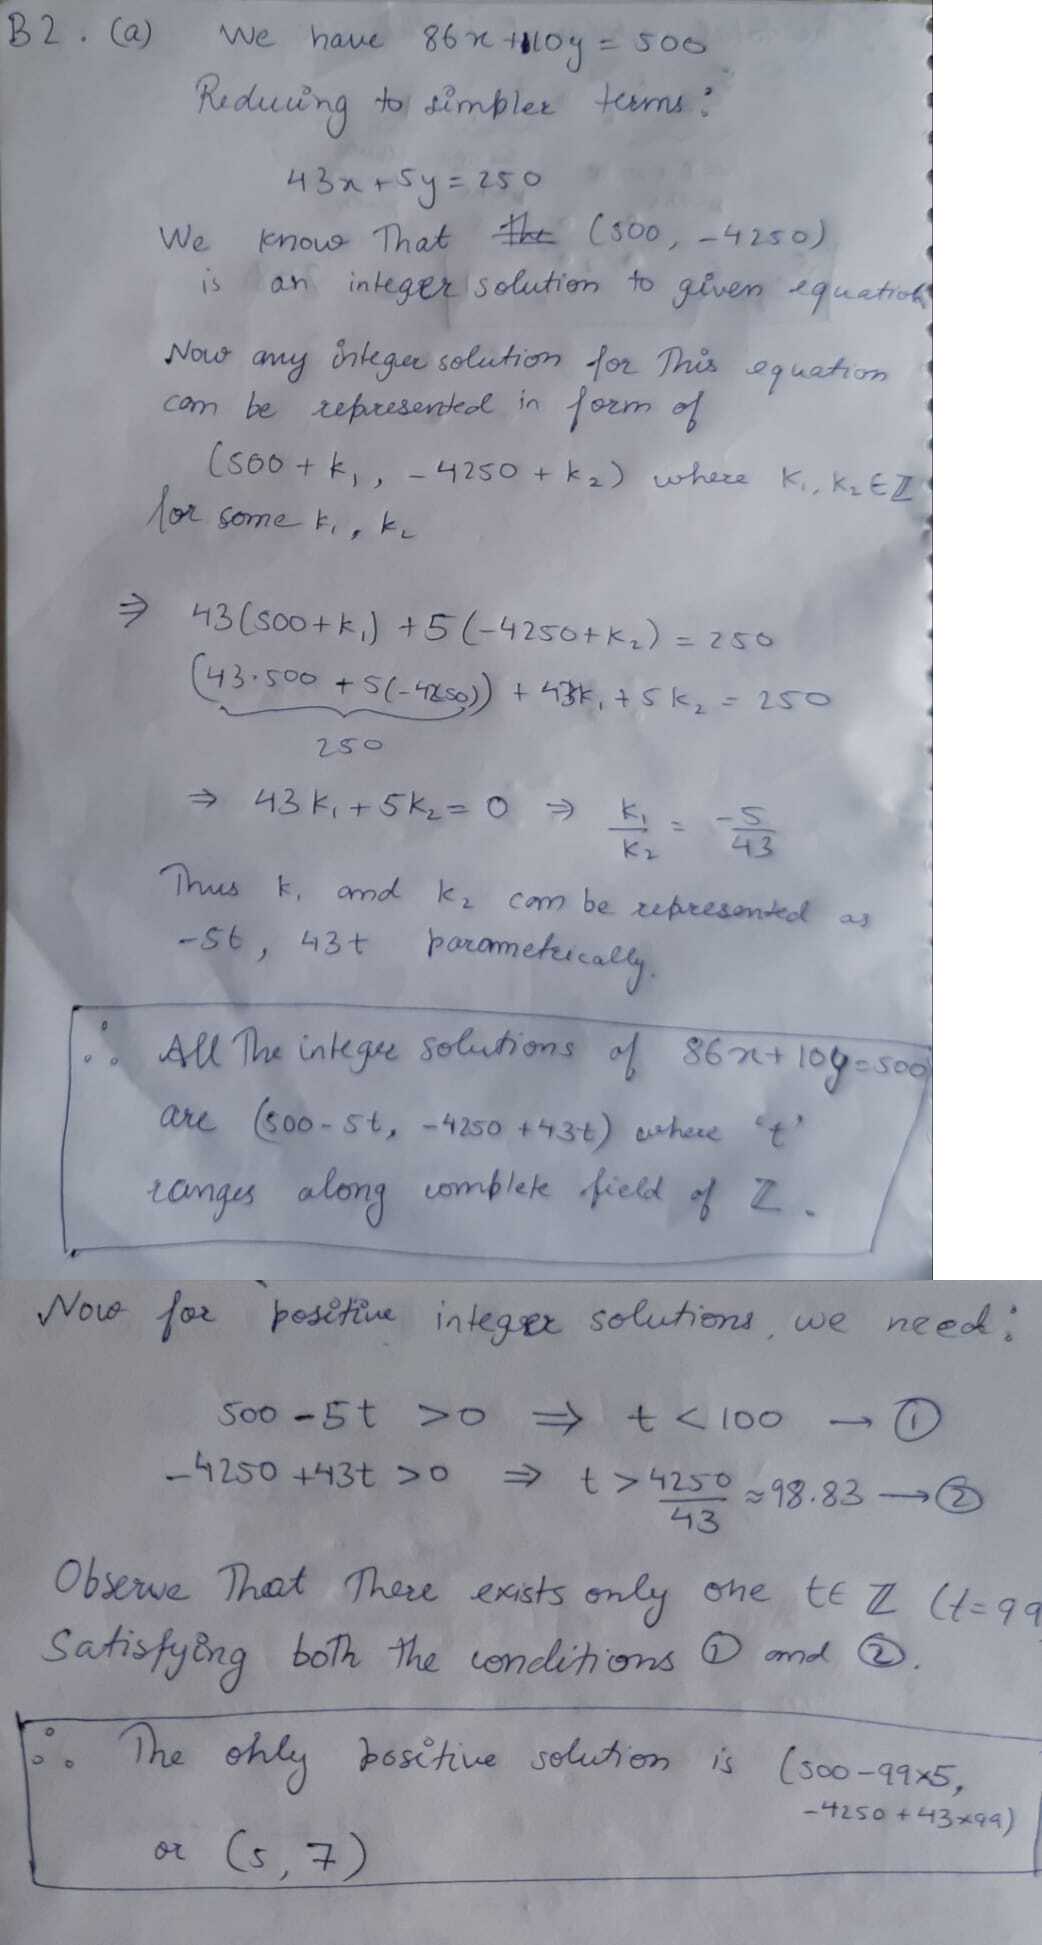 B2. (a) We have 86x+10y = 500
Reducing to simpler terms:
43x+5y=250
We know That the (500, -4250)
is an integer solution to given equation
Now any integer solution for This equation
can be represented in form of
(500 + k₁, -4250 + k₂) where k₁, k₂ ∈ ℤ
for some k₁, k₂
⇒ 43(500+k₁) + 5(-4250+k₂) = 250
(43·500 + 5(-4250)) + 43k₁ + 5k₂ = 250
250
⇒ 43k₁ + 5k₂ = 0 ⇒ k₁/k₂ = -5/43
Thus k₁ and k₂ can be represented as
-5t, 43t parametrically.
∴ All The integer solutions of 86x+10y=500
are (500-5t, -4250+43t) where 't'
ranges along complete field of ℤ.
Now for positive integer solutions, we need:
500-5t >0 ⇒ t <100 → ①
-4250+43t >0 ⇒ t > 4250/43 ≈98.83 → ②
Observe That There exists only one t∈ ℤ (t=99
Satisfying both the conditions ① and ②.
∴ The only positive solution is (500-99×5,
-4250+43×99)
or (5,7)